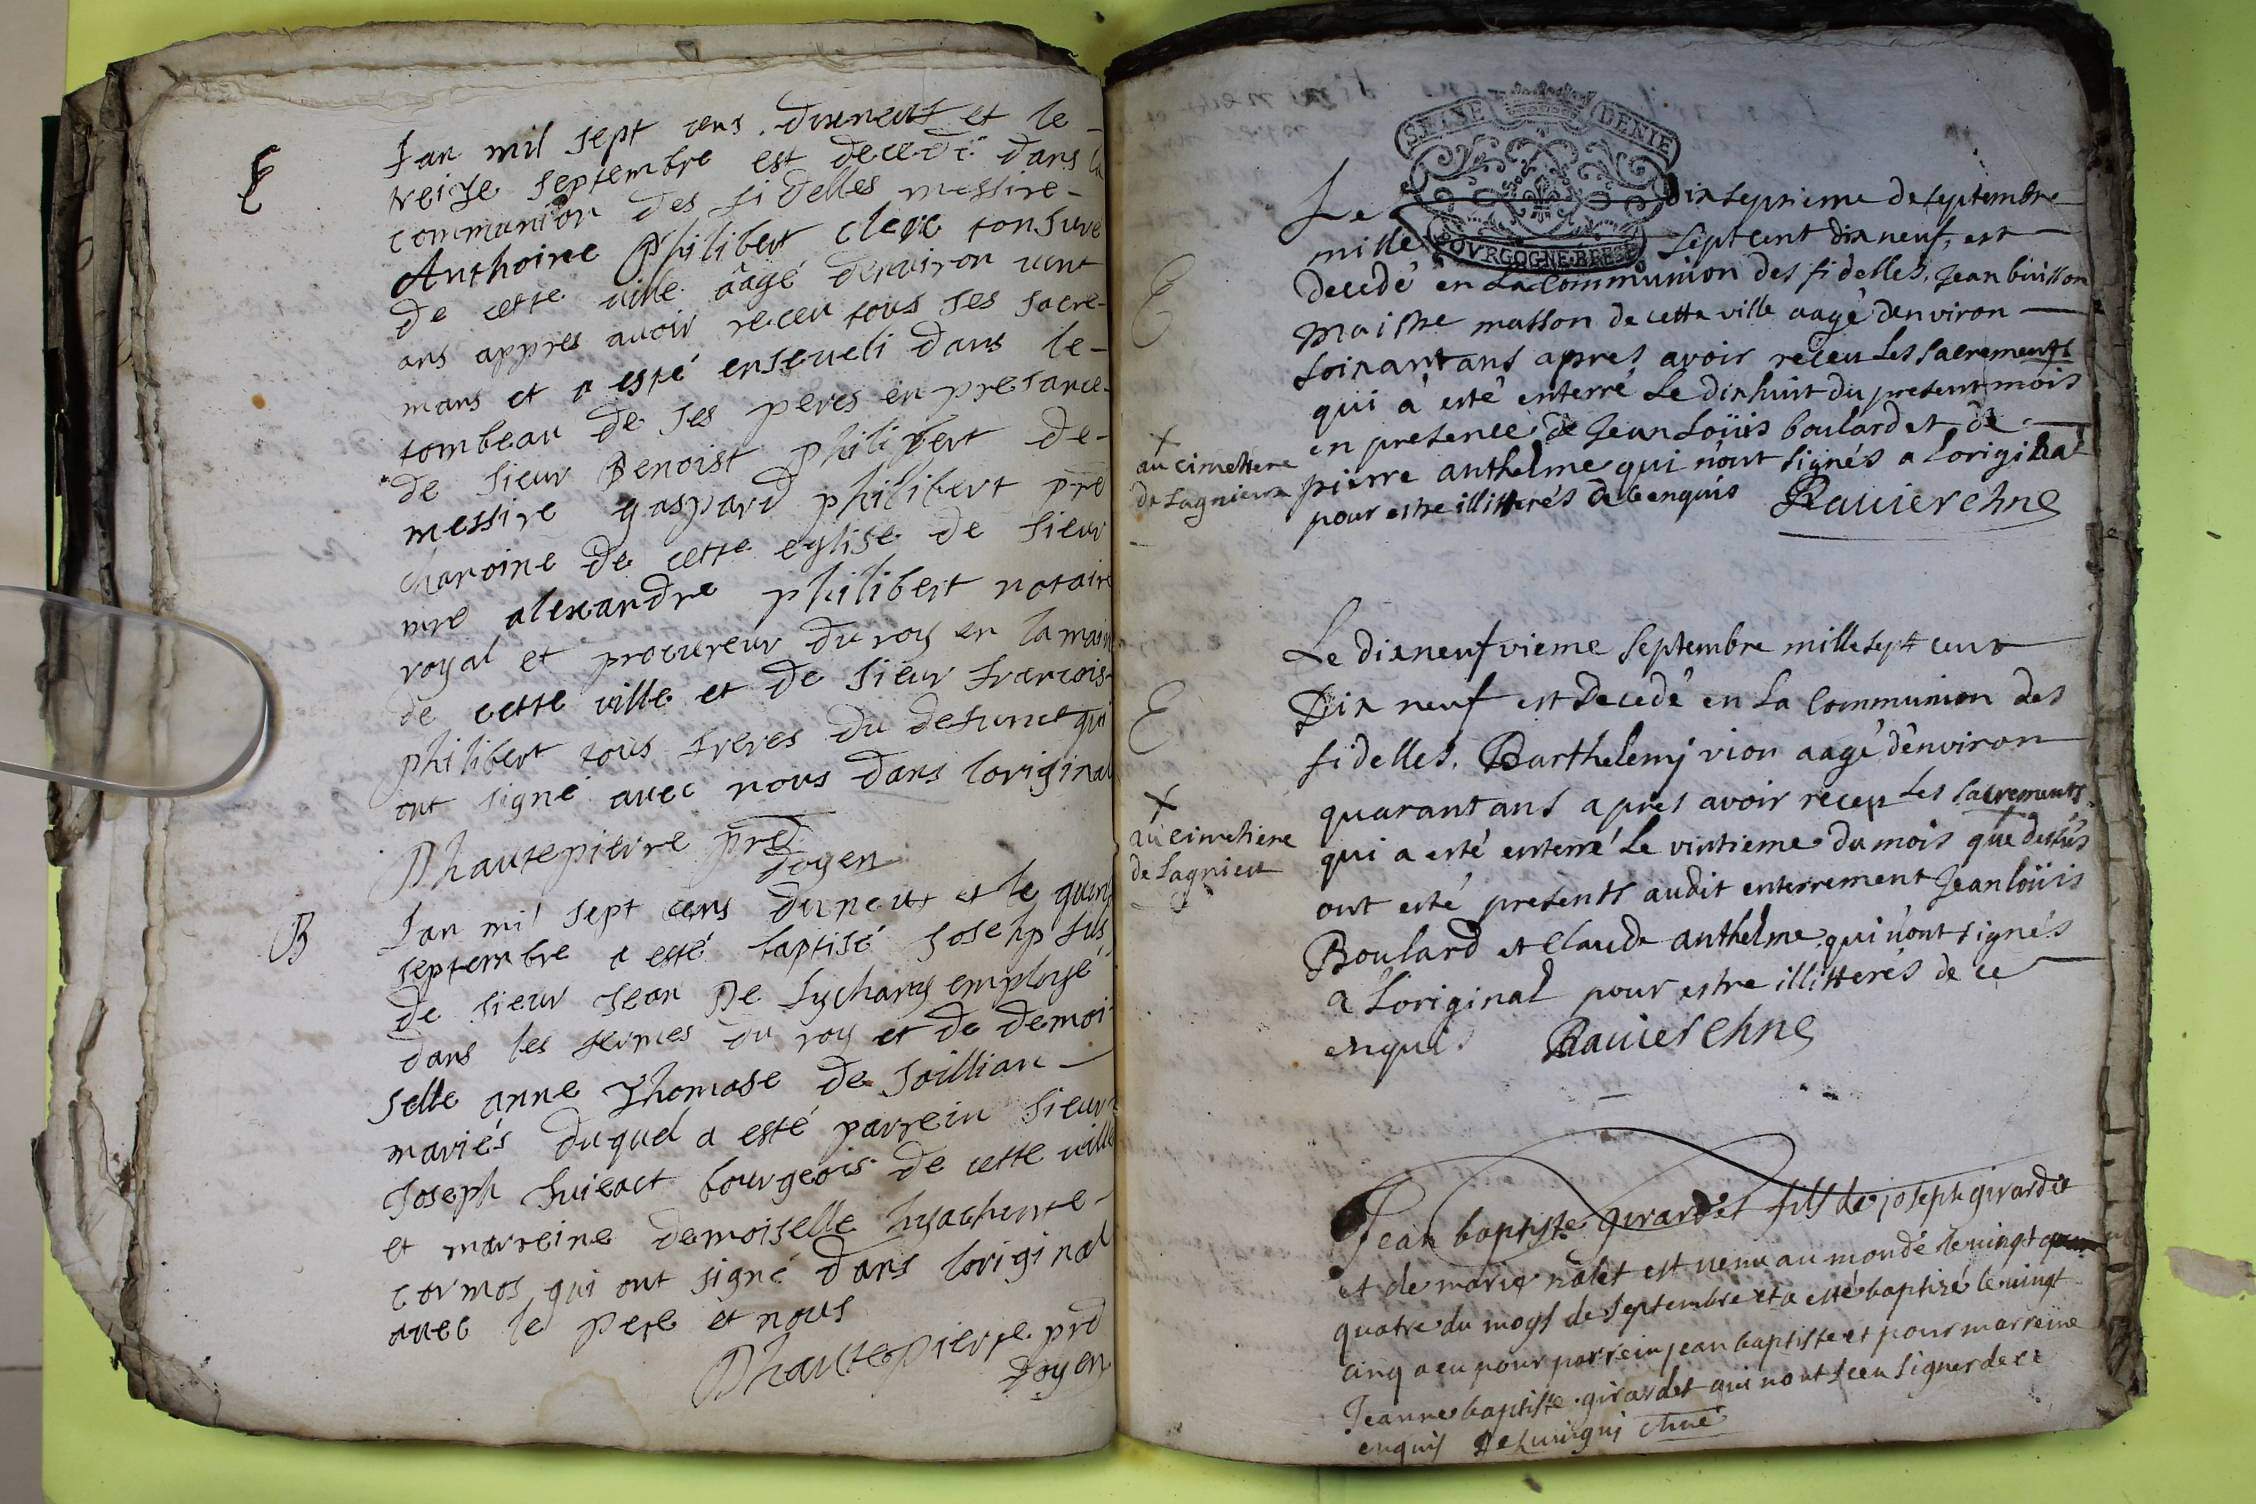 E
Lan mil sept cens dixneuf et le
treize septembre est decedé dans la
communion des fidelles messire
Anthoine Philibert clerc tonsuré
de cette ville âagé denviron vint
ans appres avoir receu tous ses sacre-
mans et a esté enseveli dans le
tombeau de ses peres en presance
de sieur Benoist philibert de
messire gaspard philibert pre
chanoine de cette eglise de sieur
mre alexandre philibert notaire
royal et procureur du roy en la mairi
de cette ville et de sieur francois
philibert tous freres du defunct qui
ont signé avec nous dans loriginal
Dhautepierre prd
doyen
B
Lan mil sept cens dixneuf et le quinz
septembre a esté baptisé Josehp fils
de sieur Jean De employé
dans les fermes du roy et de demoi
selle anne Thomase de Soillian
mariés duquel a esté parrein sieur
Joseph bourgeois de cette ville
et marreine demoiselle hyachinte
cormos qui ont signé dans loriginal
avec le pere et nous
Dhautepierre prd
doyen
SEIXE DENIE
BOVRGOGNE BRESSE
Le dixseptieme de septembre
mille sept cent dix neuf, est
E
decedé en La Communion des fidelles, Jean buisson
maistre masson de cette ville aagé denviron
soixant ans apres avoir receu Les sacrements
qui à esté enterré Le dixhuit du present mois
en presence de Jean Loüis boulard et de
pierre anthelme qui n'ont signés a Loriginal
pour estre illitterés de ce enquis Ravier chne
X
au cimetiere
de Lagnieux
Le dixneufvieme septembre mille sept cent
Dix neuf est decedé en La Communion des
E
fidelles, Barthelemj vion aagé d'environ
quarant ans apres avoir receu Les sacrements
qui a esté enterré Le vintieme du mois que dessus
ont esté presents audit enterrement Jean loüis
Boulard et Claude anthelme qui n'ont signés
a L'original pour estre illitterés de ce
enquis Ravier chne
X
au cimetiere
de Lagnieu
Jean baptiste girardet fils de joseph girardet
et de marie nalet est venu au monde le vingt
quatre du moys de septembre et a esté baptizé le vingt
cinq a eu pour parrein jean baptiste et pour marreine
Jeanne baptiste girardet qui nont sceu signer de ce
enquis chne